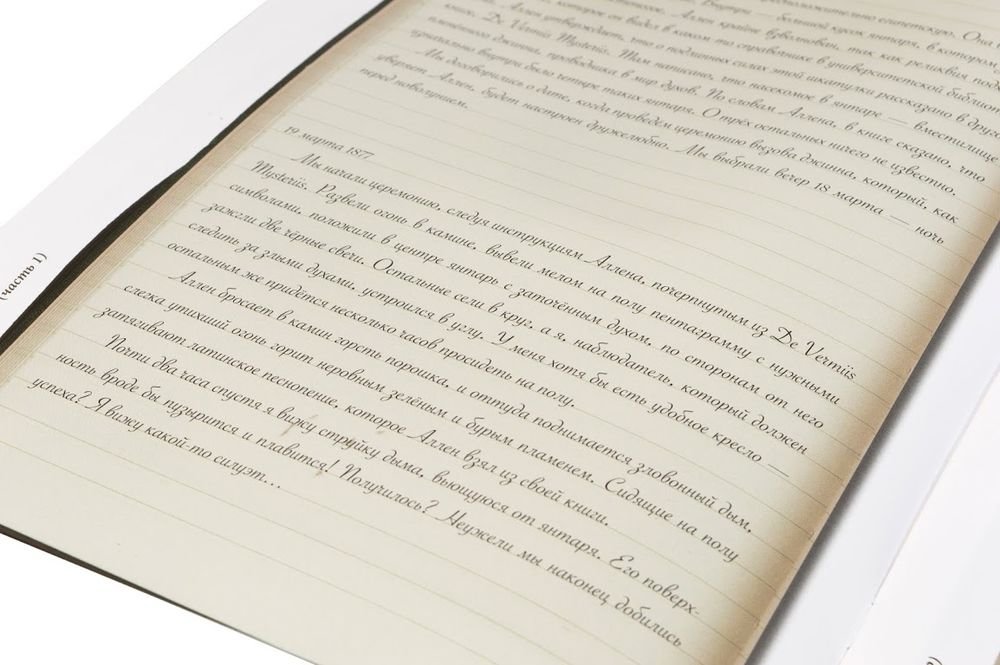 предположительно египетскую. Она
Внутри — большой кусок янтаря, в котором,
которое он видел в каком-то справочнике в университетской библио
Аллен утверждает, что о подлинных силах этой шкатулки рассказано в друго
книге, De Vermiis Mysteriis. Там написано, что насекомое в янтаре — вместилище
пленённого джинна, проводника в мир духов. По словам Аллена, в книге сказано, что
изначально внутри было четыре таких янтаря. О трёх остальных ничего не известно.
Мы договорились о дате, когда проведём церемонию вызова джинна, который, как
уверяет Аллен, будет настроен дружелюбно. Мы выбрали вечер 18 марта — ночь
перед новолунием.
19 марта 1877
Мы начали церемонию, следуя инструкциям Аллена, почерпнутым из De Vermiis
Mysteriis. Развели огонь в камине, вывели мелом на полу пентаграмму с нужными
символами, положили в центре янтарь с заточённым духом, по сторонам от него
зажгли две чёрные свечи. Остальные сели в круг, а я, наблюдатель, который должен
следить за злыми духами, устроился в углу. У меня хотя бы есть удобное кресло —
остальным же придётся несколько часов просидеть на полу.
Аллен бросает в камин горсть порошка, и оттуда поднимается зловонный дым,
слегка утихший огонь горит неровным зелёным и бурым пламенем. Сидящие на полу
затягивают латинское песнопение, которое Аллен взял из своей книги.
Почти два часа спустя я вижу струйку дыма, вьющуюся от янтаря. Его поверх-
ность вроде бы пузырится и плавится! Получилось? Неужели мы наконец добились
успеха? Я вижу какой-то силуэт...
(часть 1)